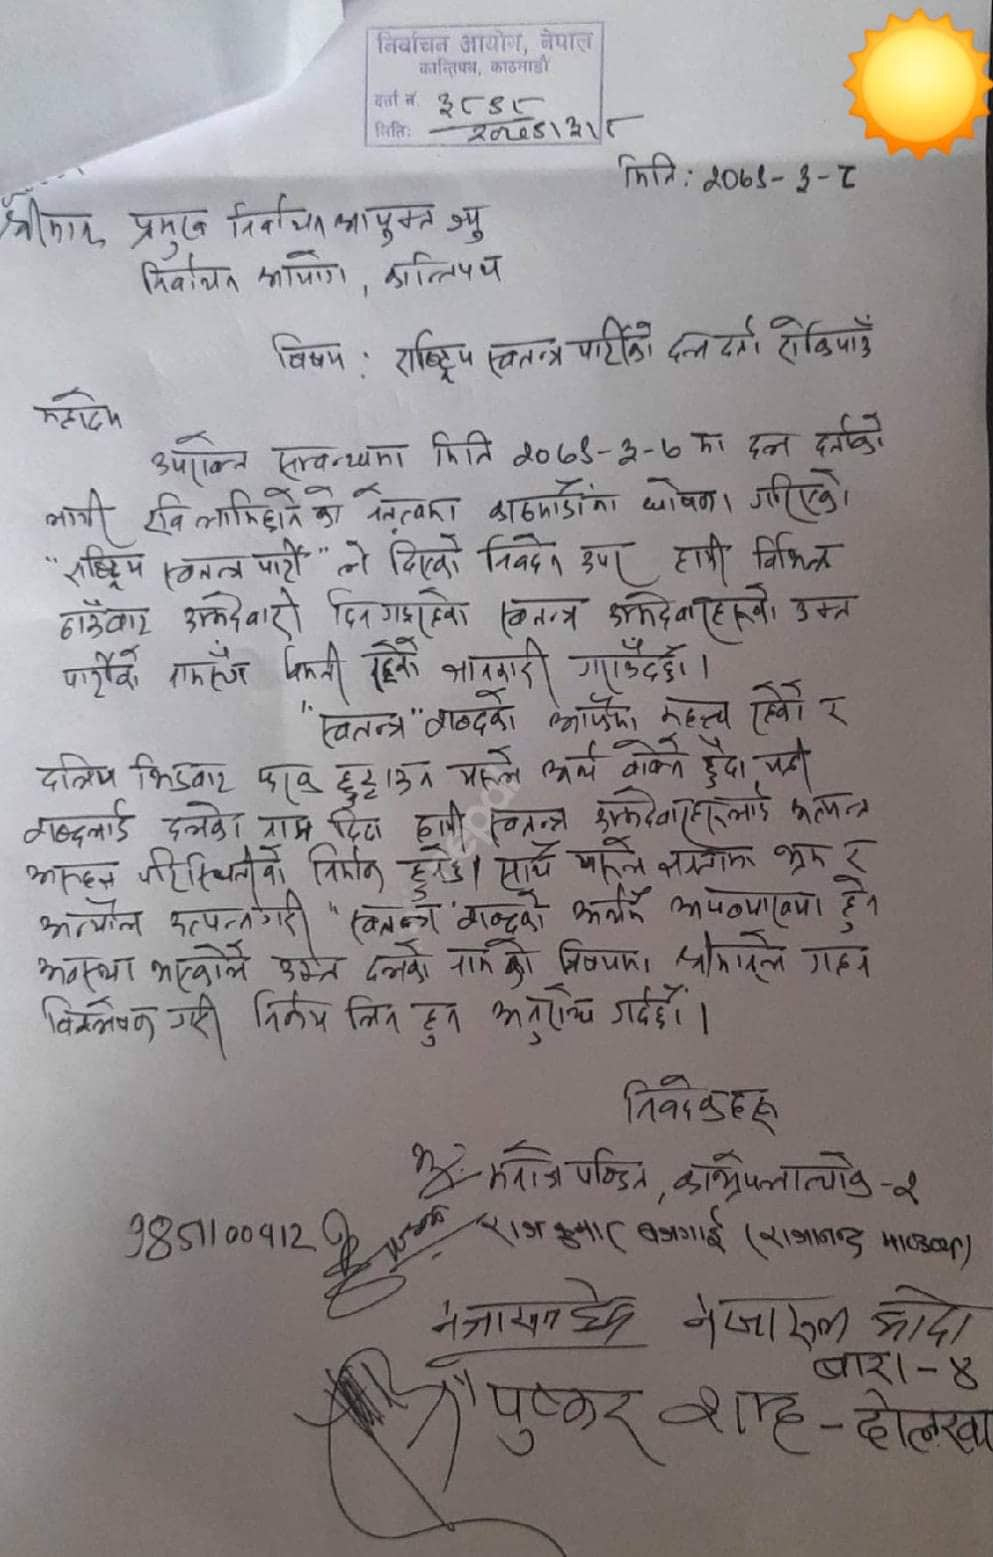 निर्वाचन आयोग, नेपाल
कान्तिपथ, काठमाडौं
दर्ता नं. ३८९८
मिति: २०७९।३।८
मिति: २०७९-३-८
श्रीमान् प्रमुख निर्वाचन आयुक्त ज्यु
निर्वाचन आयोग, कान्तिपथ
विषय: राष्ट्रिय स्वतन्त्र पार्टीको दल दर्ता रोकिपाउँ
महोदय
उपरोक्त सम्बन्धमा मिति २०७९-३-७ मा दल दर्ताको
लागी रवि लामिछाने को नेतृत्वमा काठमाडौंमा घोषणा गरिएको
"राष्ट्रिय स्वतन्त्र पार्टी" ले दिएको निवेदन उपर हामी विभिन्न
ठाउँबाट उम्मेदवारी दिन गइरहेका स्वतन्त्र उम्मेदवारहरुको उक्त
पार्टीको नामसँग विमती रहेको जानकारी गराउँदछौं।
"स्वतन्त्र" शब्दको आफ्नै महत्त्व रहेको र
दलिय भिडबाट फरक छुट्टाउन यसले अर्थ बोक्ने हुँदा यही
शब्दलाई दलको नाम दिंदा हामी स्वतन्त्र उम्मेदवारहरुलाई अत्यन्त
असहज परिस्थितीको निर्माण हुनेछ। साथै यसले भ्रम र
अन्यौल उत्पन्न गरी "स्वतन्त्र" शब्दको अर्थनै अपव्याख्या हुन
अवस्था भएकोले उक्त दलको नामको विषयमा श्रीमानले गहन
विश्लेषण गरी निर्णय लिन हुन अनुरोध गर्दछौं।
निवेदकहरू
मनोज पण्डित, काभ्रेपलान्चोक-२
9851100912 राज कुमार बजगाई (राजानन्द
नेजारुल
बारा-४
पुष्कर शाह - दोलखा